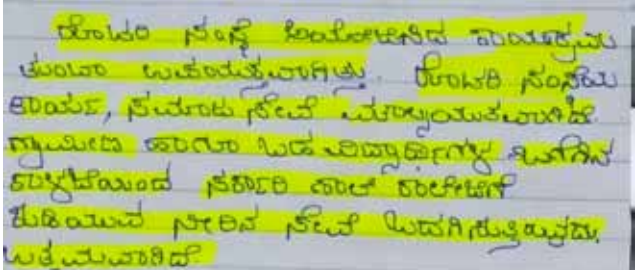 ರೋಟರಿ ಸಂಸ್ಥೆ ಆಯೋಜಿಸಿದ ಕಾರ್ಯಕ್ರಮ
ತುಂಬಾ ಉಪಯುಕ್ತವಾಗಿತ್ತು. ರೋಟರಿ ಸಂಸ್ಥೆಯ
ಕಾರ್ಯ, ಸಮಾಜ ಸೇವೆ ಮೌಲ್ಯಯುತವಾಗಿದೆ.
ಗ್ರಾಮೀಣ ಹಾಗೂ ಬಡ ವಿದ್ಯಾರ್ಥಿಗಳ
ಕಾಳಜಿಯಿಂದ ಸರ್ಕಾರಿ ಕಾಲೇಜಿಗೆ
ಕುಡಿಯುವ ನೀರಿನ ಸೇವೆ ಒದಗಿಸುತ್ತಿರುವುದು
ಉತ್ತಮವಾಗಿದೆ